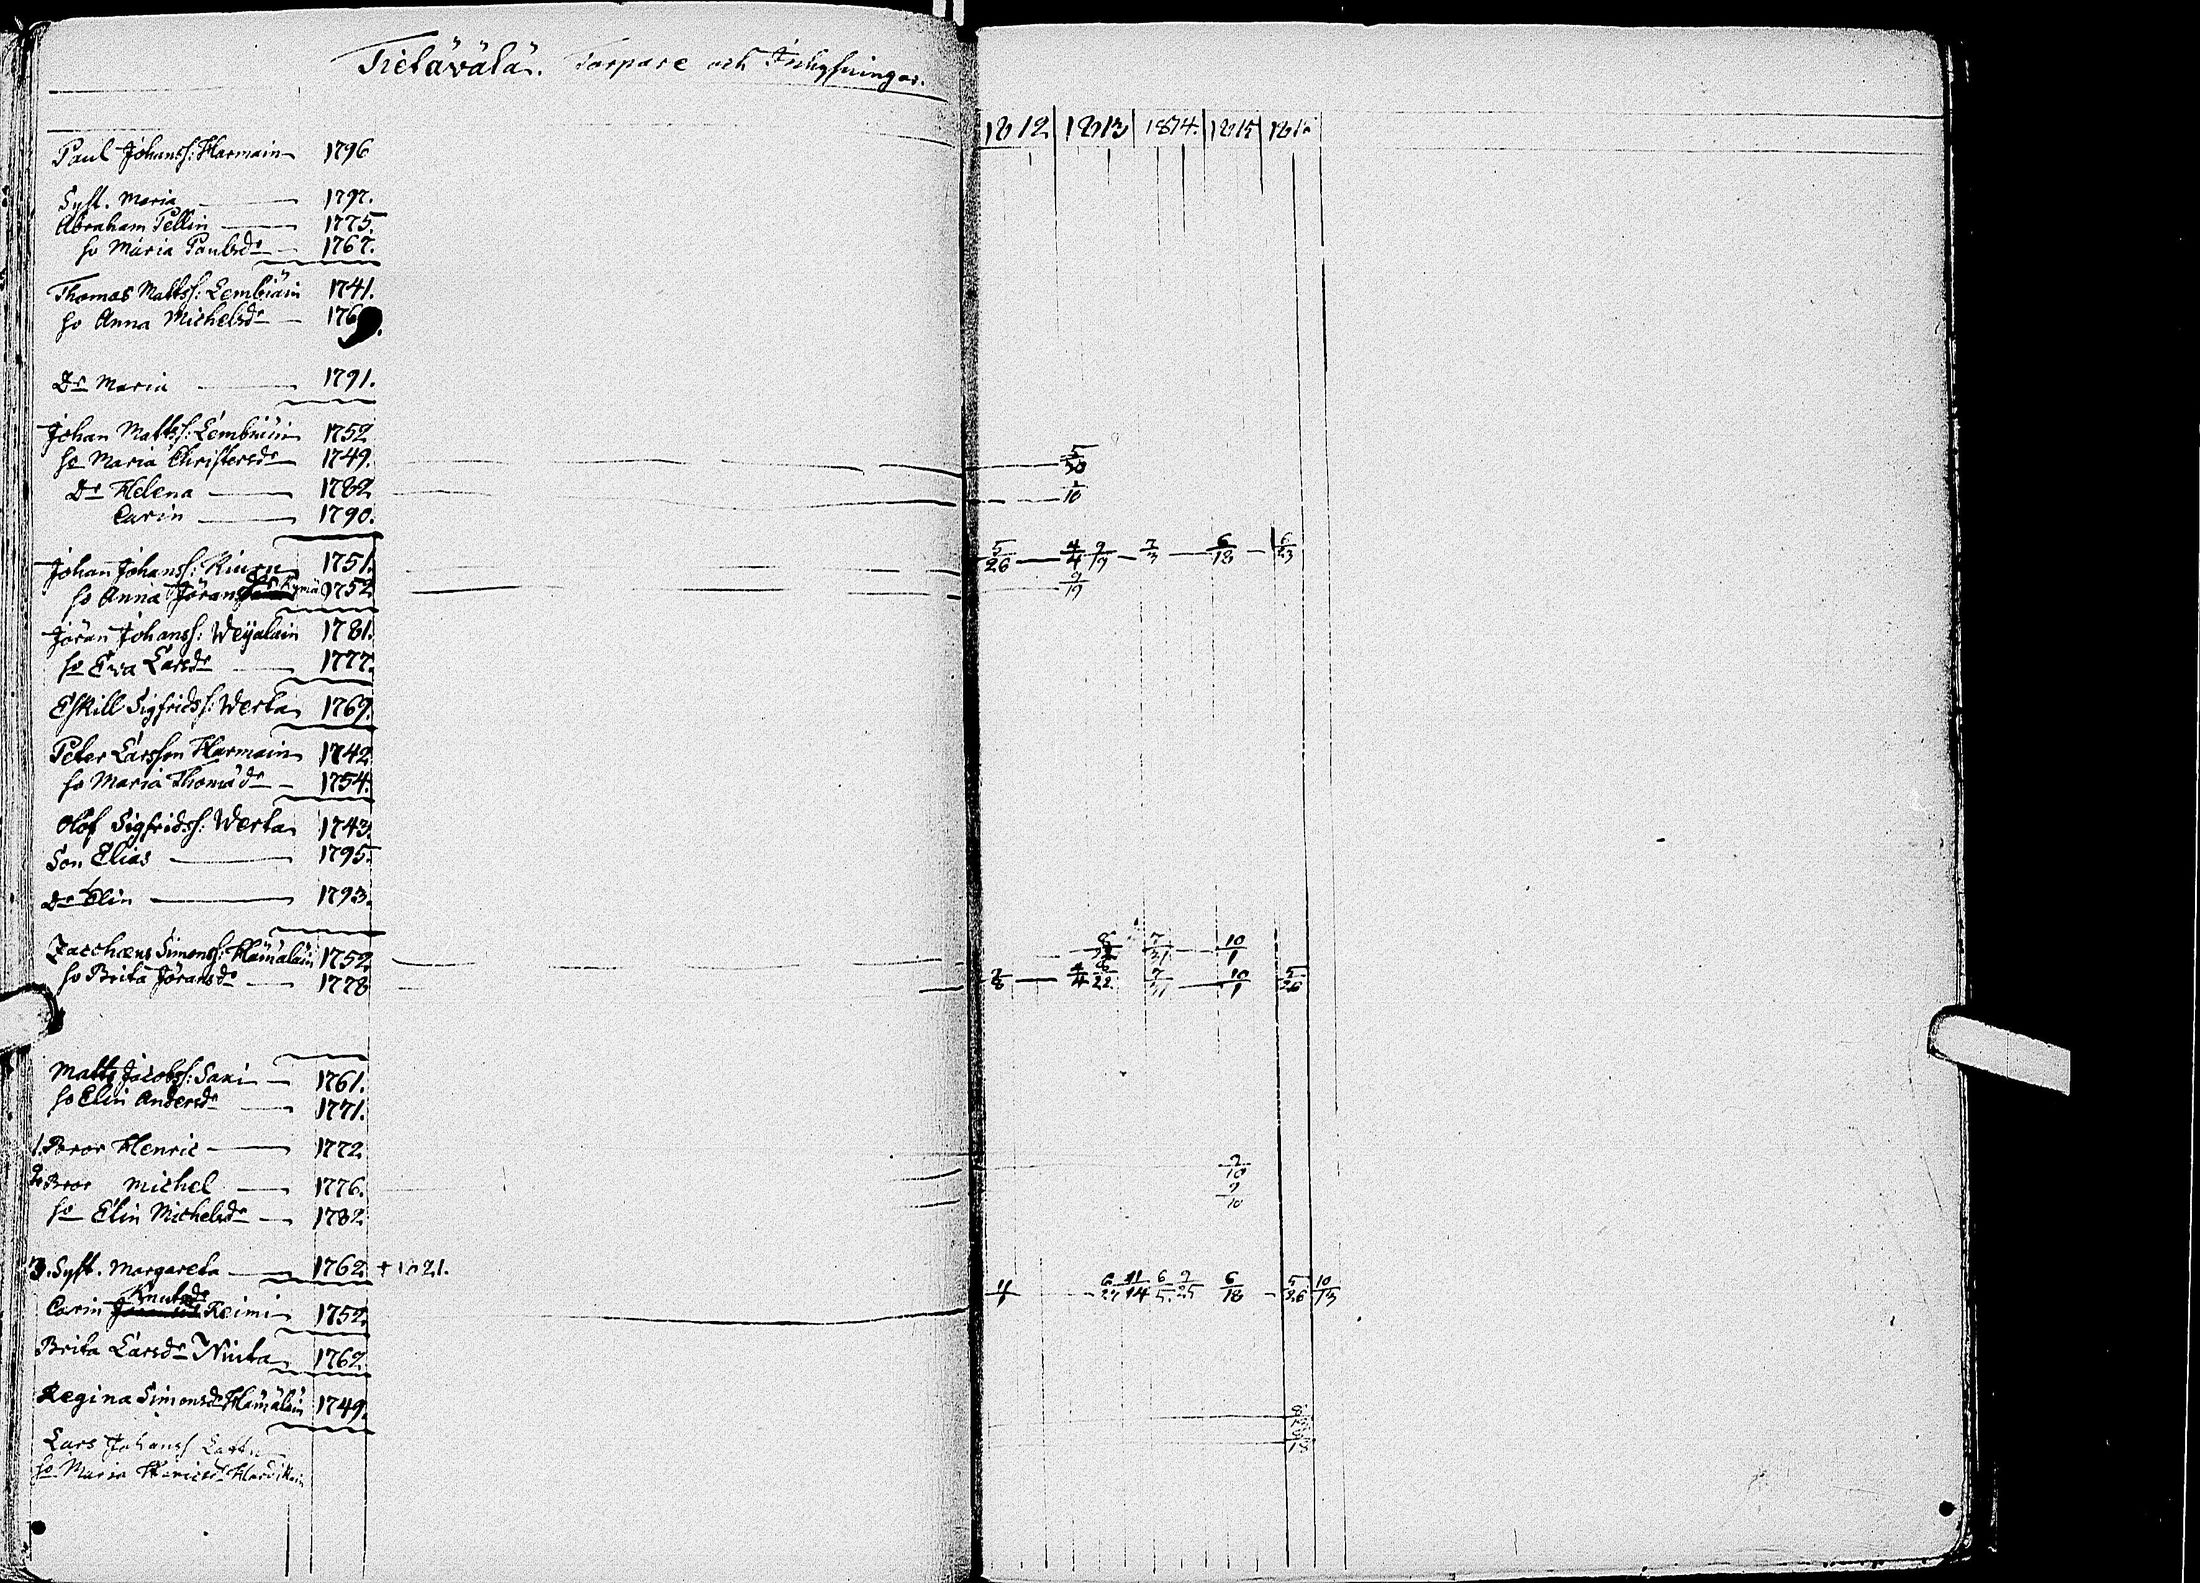 Tietävälä. Torpare och Inhysningar.
1812 1813 1814. 1815 1816
Paul Johanss: Harmain 1796
Syst. Maria 1797.
Abraham Pellin 1775.
ho Maria Paulsdr 1767.
Thomas Mattss: Lembiäin 1741.
ho Anna Michelsdr 1769.
Dr Maria 1791.
Johan Mattss: Lembiäin 1752
ho Maria Christersdr 1749. 5/30
Dr Helena 1782 1/10
Carin 1790.
Johan Johanss: Kinen 1751. 5/26 4/4 9/19 7/3 6/18 6/23
ho Anna Jörans 1752 9/19
Jöran Johanss: Weijalain 1781.
ho Eva Larsdr 1777.
Eskill Sigfridss: Werta 1769.
Peter Larsson Harmain 1742
ho Maria Thomädr 1754.
Olof Sigfridss: Werta 1743.
Son Elias 1795.
Dr Elin 1793.
Zacchæus Simonss: Hämäläin 1752 7/31 10/1
ho Brita Jöransdr 1778 2/8 4/4 8/22 7/31 10/1 5/26
Matts Jacobss: Saxi 1761.
ho Elin Andersdr 1771.
1. Bror Henric 1772
2. Bror Michel 1776. 9/10
ho Elin Michelsdr 1782 9/10
3. Syst. Margareta 1762 + 1821.
Carin Knutsdr Reimi 1752. 4/1 6/27 11/14 6/5 9/25 6/18 5/26 10/13
Brita Larsdr Niuta 1762
Regina Simonsdr Hämäläin 1749.
Lars Johanss 8/18
ho Maria Henricsdr Hardikain 8/18